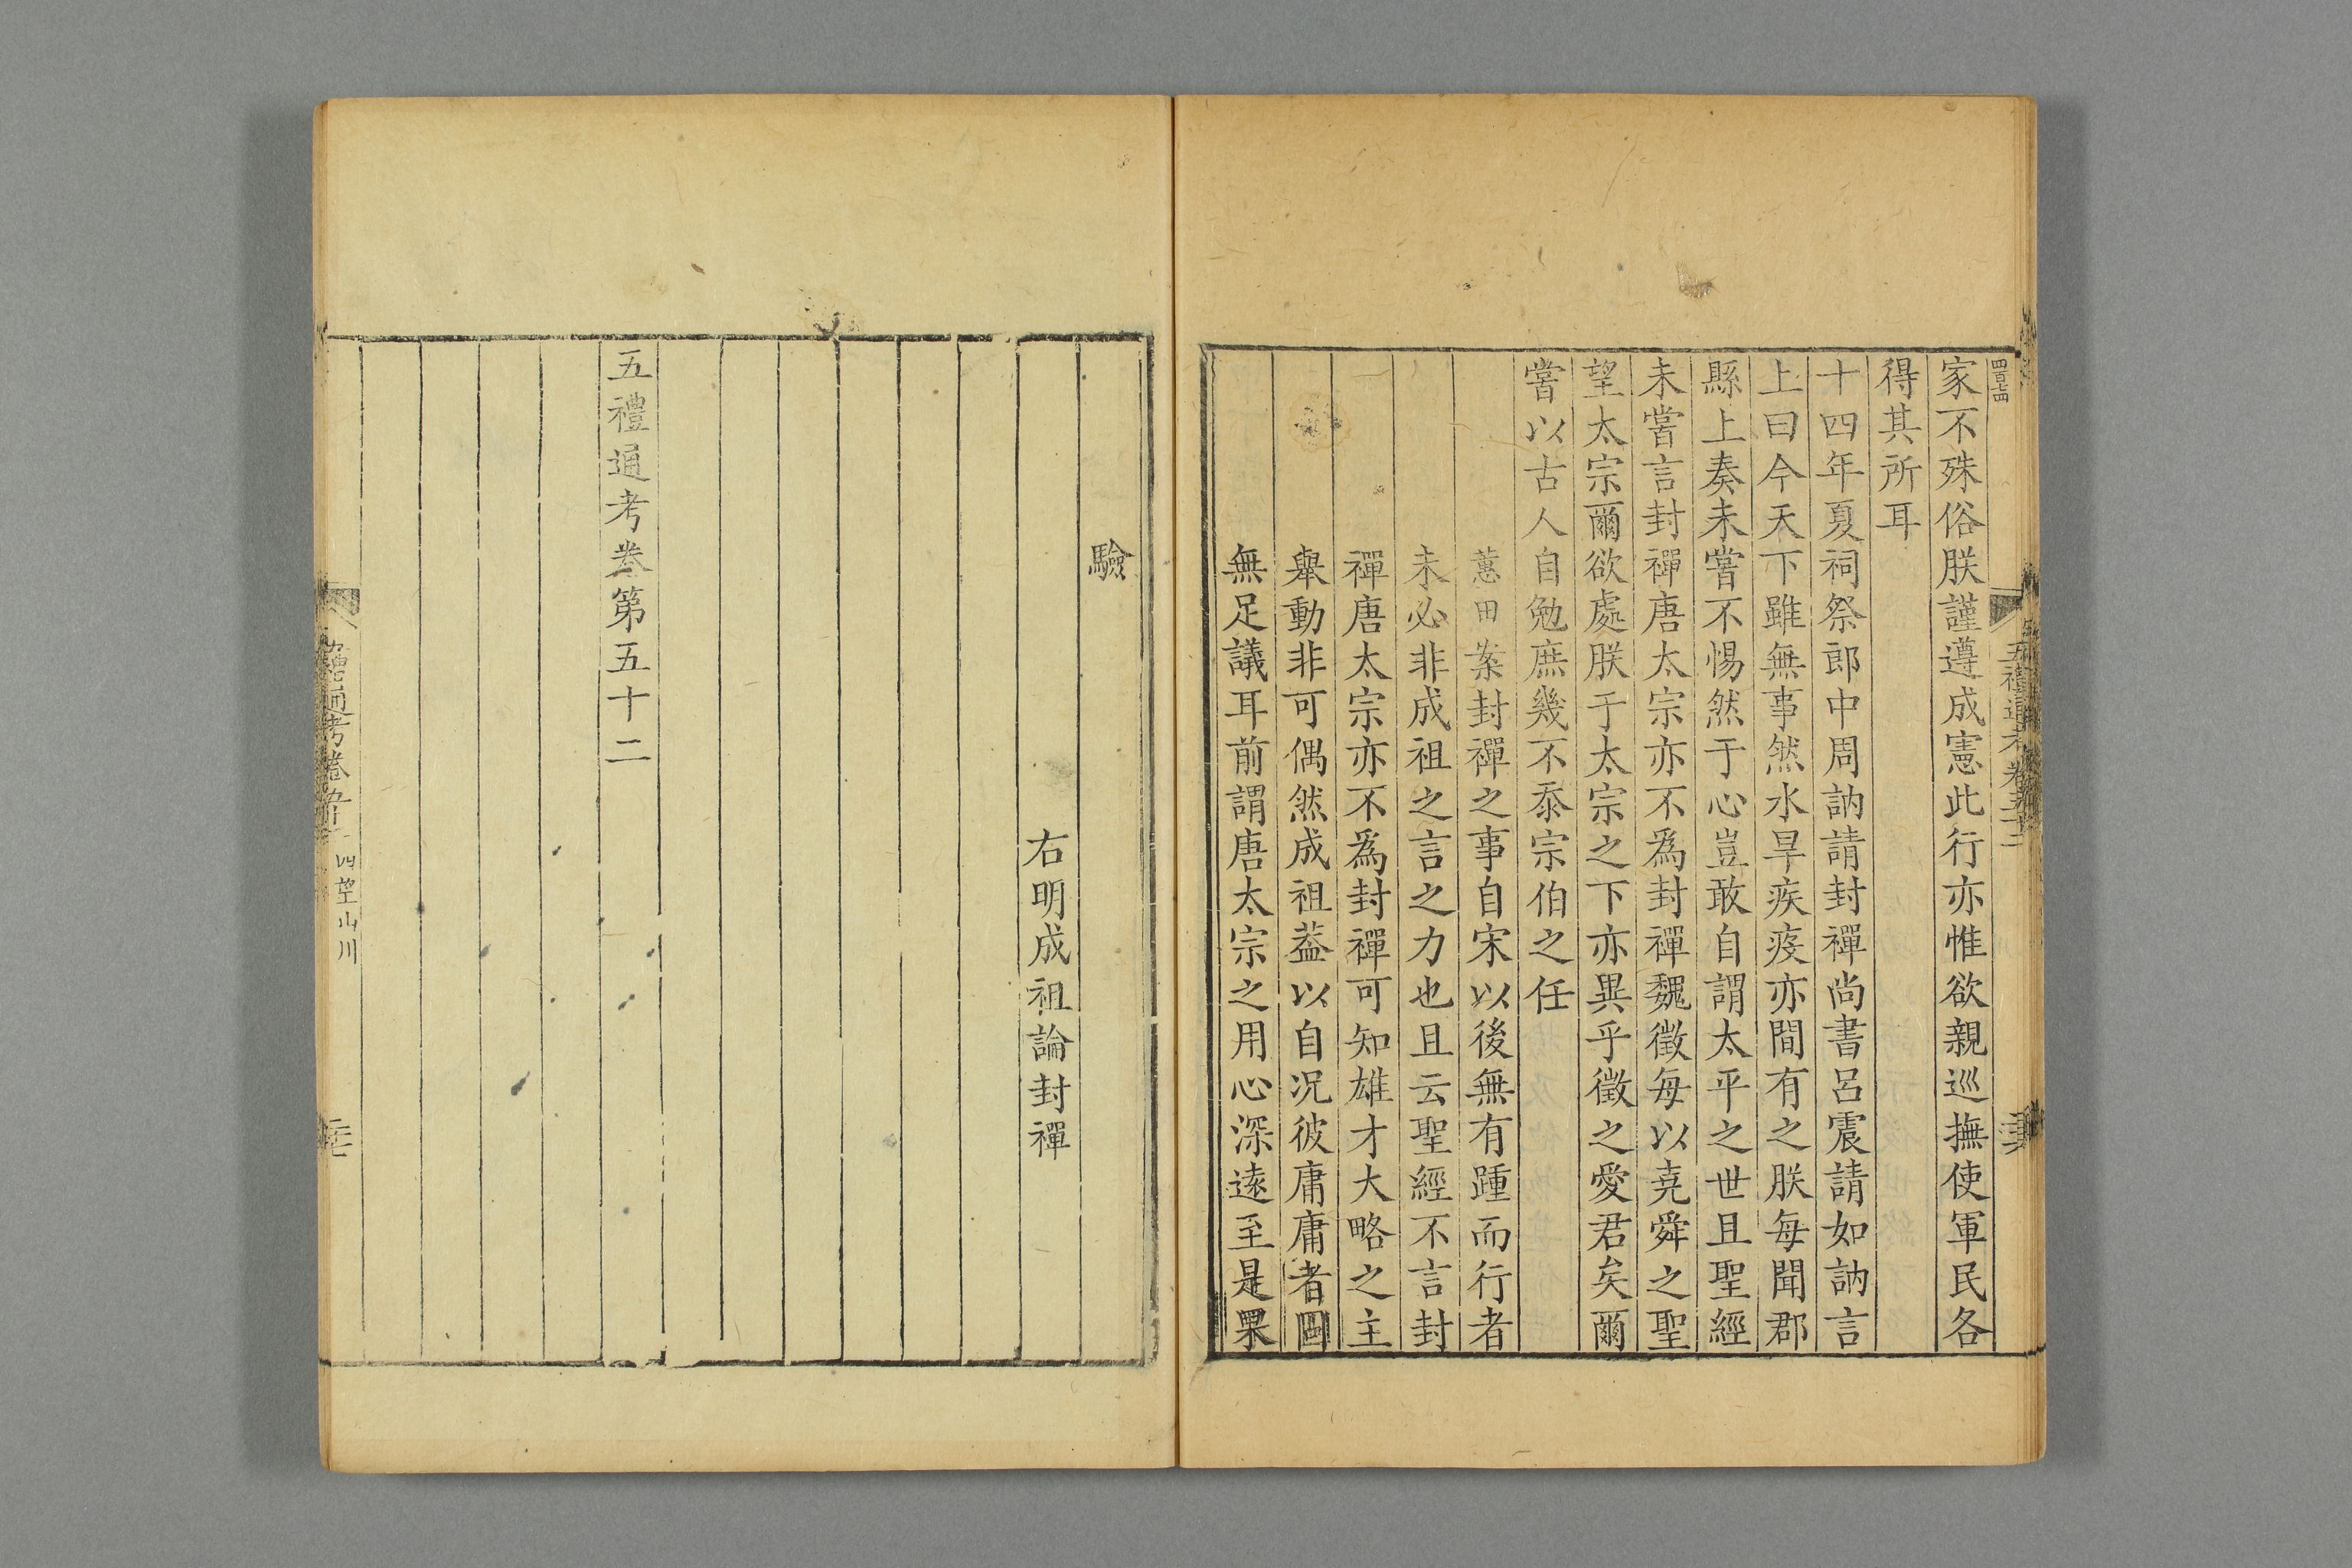 家不殊俗朕謹遵成憲此行亦惟欲親巡撫使軍民各
得其所耳
十四年夏祠祭郎中周訥請封禪尚書呂震請如訥言
上曰今天下雖無事然水旱疾疫亦間有之朕每聞郡
縣上奏未嘗不惕然于心豈敢自謂太平之世且聖經
未嘗言封禪唐太宗亦不爲封禪魏徵每以堯舜之聖
望太宗爾欲處朕于太宗之下亦異乎徵之愛君矣爾
嘗以古人自勉庶幾不忝宗伯之任
蕙田案封禪之事自宋以後無有踵而行者
未必非成祖之言之力也且云聖經不言封
禪唐太宗亦不爲封禪可知雄才大略之主
舉動非可偶然成祖葢以自况彼庸庸者固
無足議耳前謂唐太宗之用心深遠至是果
驗
右明成祖論封禪
五禮通考卷第五十二
四望山川